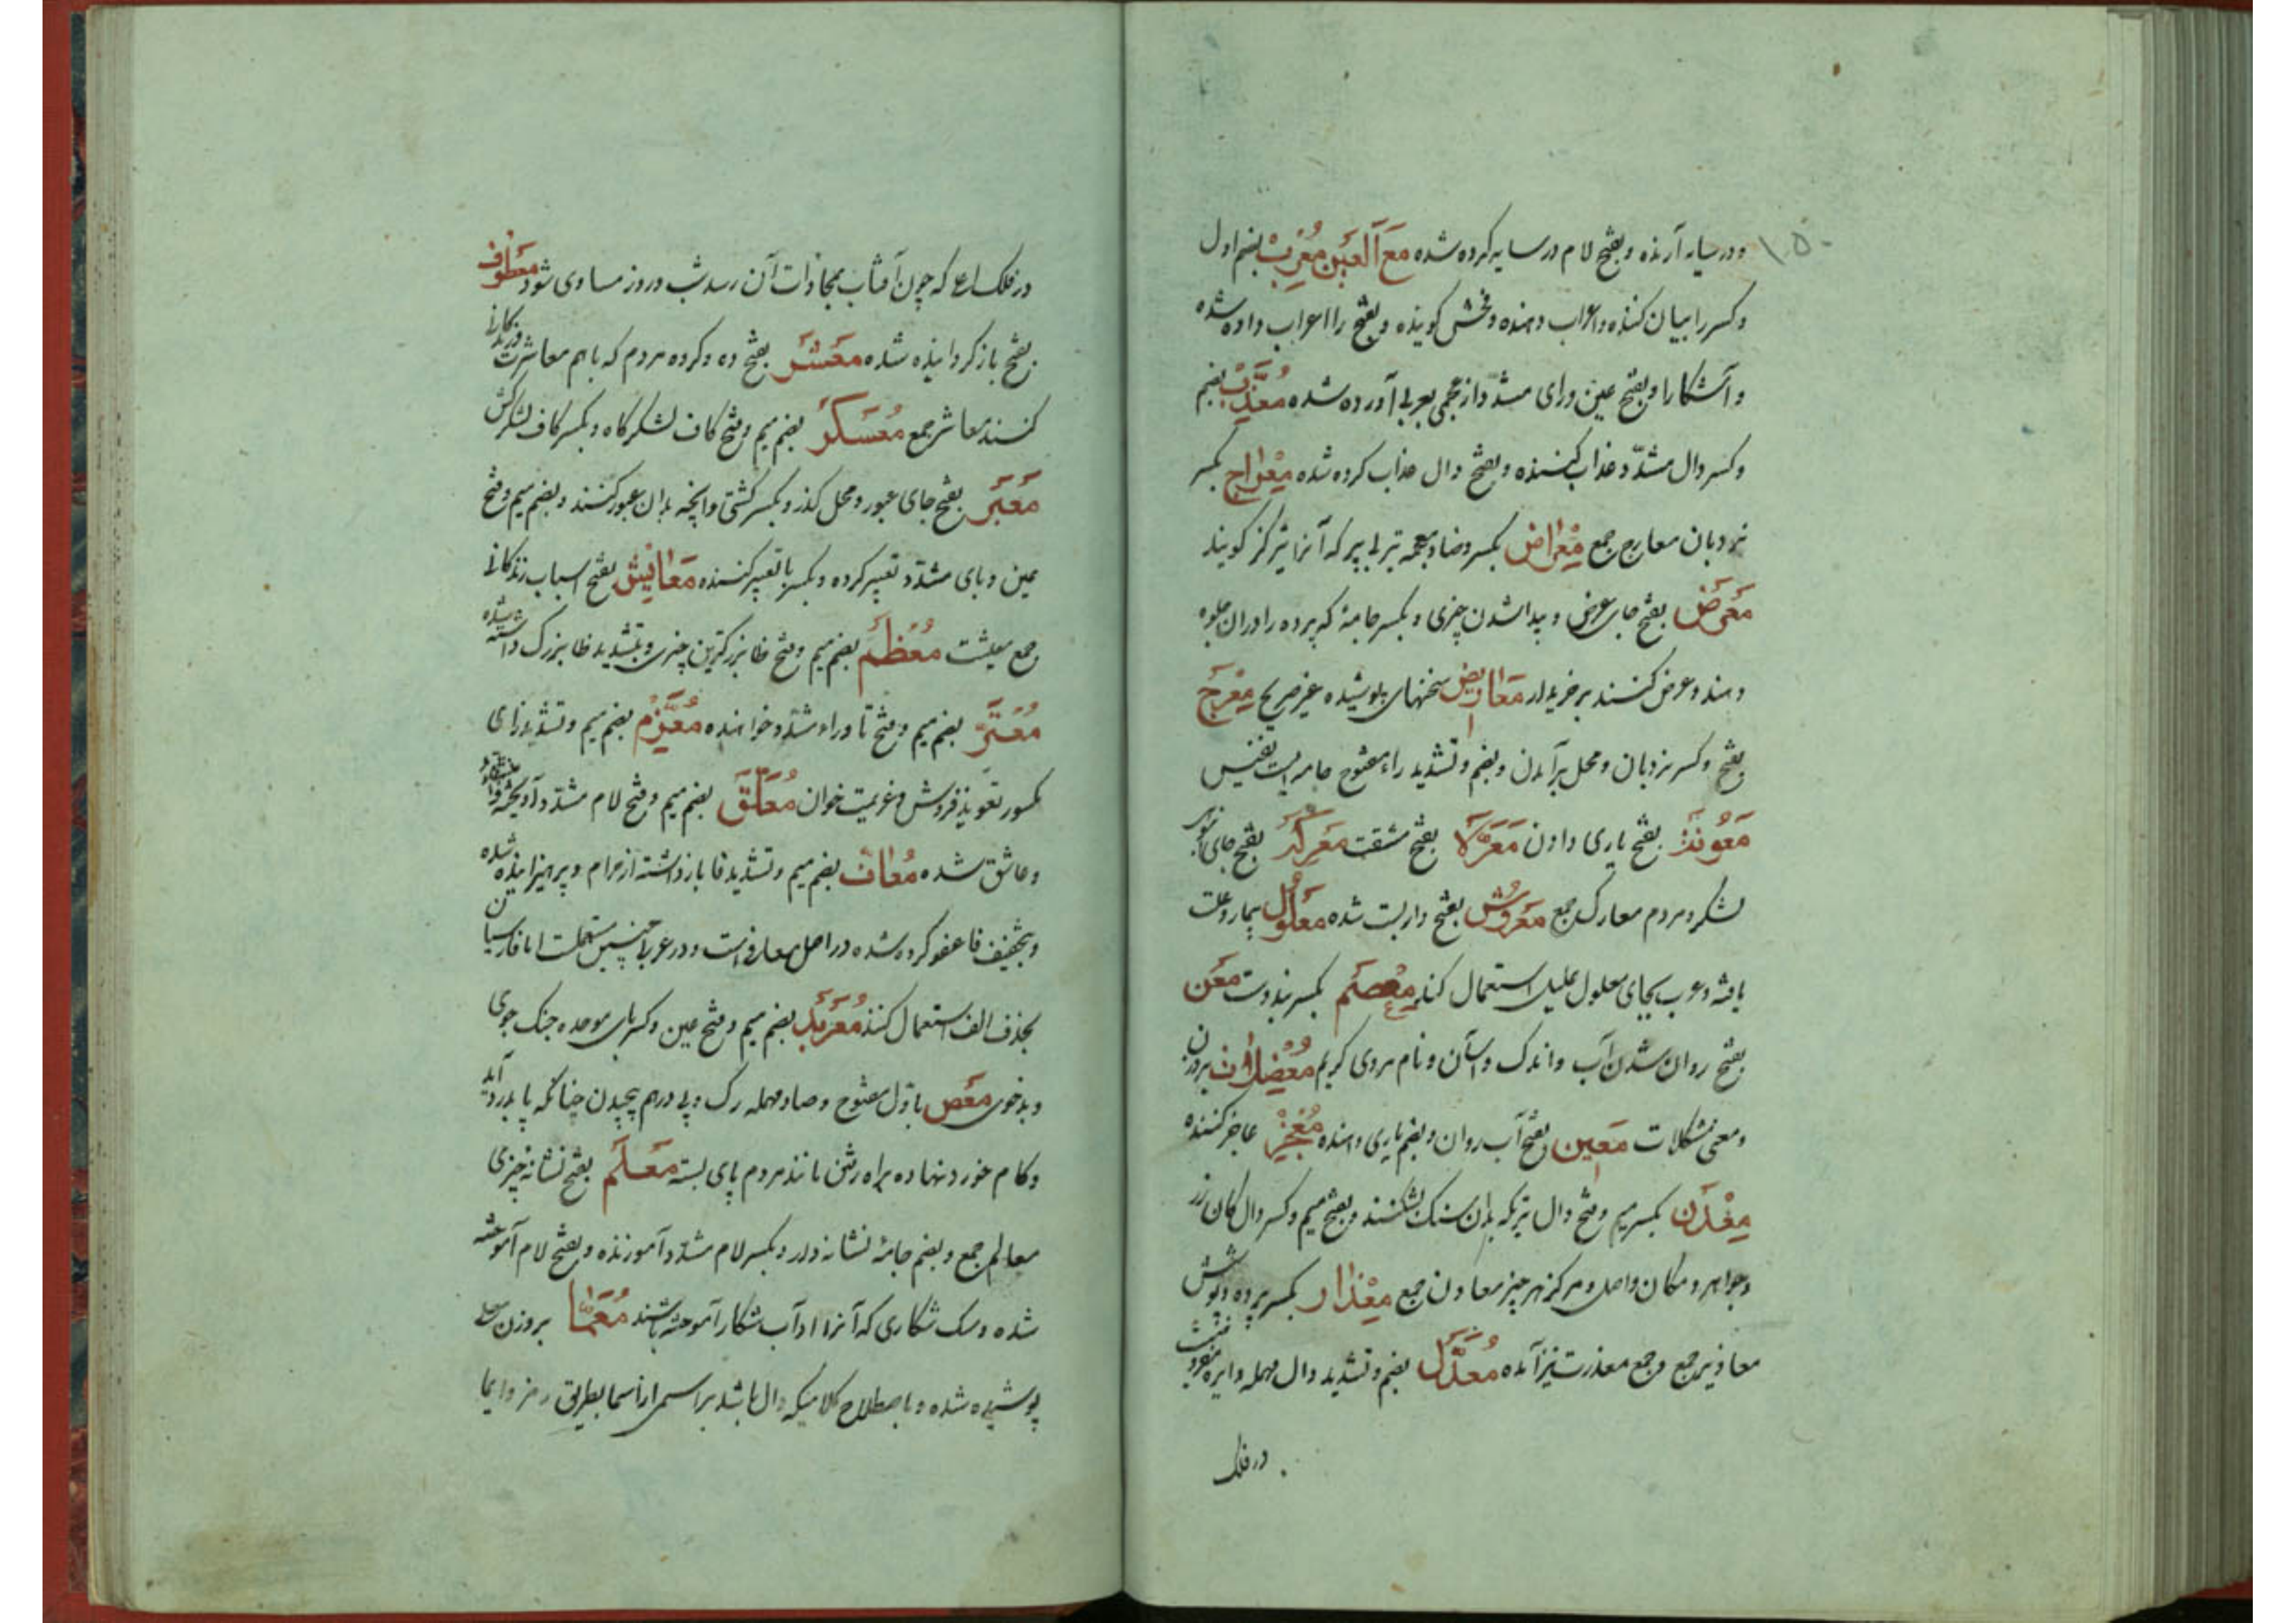 ۱۵۰
و در سایه آرنده و بفتح لام در سایه کرده شده مع العین معرب بضم اول
و کسر را بیان کننده و اعراب دهنده و فحش کوینده و بفتح را اعراب داده شده
و آشکارا و بفتح عین و رای مشدد از عجمی بعربی آورده شده معذب بضم
و کسر ذال مشدد عذاب کننده و بفتح ذال عذاب کرده شده معراج بکسر
نردبان معارج جمع معراض بکسر و ضاد معجمه تیر بی پر که آنرا تیر کز کویند
معرض بفتح جای عرض و پیدا شدن چیزی و بکسر جامهٔ که برده را در ان جلوه
دهند و عرض کنند بر خریدار معاریض سخنهای پوشیده غیر صریح معرج
بفتح و کسر نردبان و محل برآمدن و بضم و تشدید راء مفتوح جامه ایست نفیس
معونة بفتح یاری دادن معرة بفتح مشقت معرکه بفتح جای انبوه
لشکر و مردم معارک جمع معروش بفتح داربست شده معلول بیمار و علت
یافته و عرب بجای معلول علیل استعمال کنند معصم بکسر بند دست معن
بفتح روان شدن آب و اندک و آسان و نام مردی کریم معضلات بر وزن
و معنی مشکلات معین بفتح آب روان و بضم یاری دهنده معجز عاجز کننده
معدن بکسر میم و فتح دال تبر که بدان سنک بشکنند و بفتح میم و کسر دال کان زر
و جواهر و مکان و اصل و مرکز هر چیز معادن جمع معذار بکسر پرده و پوشش
معاذیر جمع و جمع معذرت نیز آمده معدل بضم و تشدید دال مهمله دایره
در فلک
در فلک اعلی که چون آفتاب بمحاذات آن رسد شب و روز مساوی شود معطوف
بفتح باز کردانیده شده معشر بفتح ده و کروه مردم که باهم معاشرت و زندکانی
کنند معاشر جمع معسکر بضم میم و فتح کاف لشکرکاه و بکسر کاف لشکرکش
معبر بفتح جای عبور و محل کذر و بکسر کشتی و آنچه بدان عبور کنند و بضم میم و فتح
عین و بای مشدد تعبیر کرده و بکسر با تعبیر کننده معایش بفتح اسباب زندکانی
جمع معیشت معظم بضم میم و فتح ظا بزرکترین چیزی و بتشدید ظا بزرک داشته شده
معتر بضم میم و فتح تا و راء مشدد خواهنده معزم بضم میم و تشدید زای
مکسور تعویذ فروش و عزیمت خوان معلق بضم میم و فتح لام مشدد آویخته
و عاشق شده معاف بضم میم و تشدید فا بازداشته از حرام و پرهیزانیده شده
و بتخفیف فا عفو کرده شده در اصل معافی است و در عربی چنین مستعملست اما فارسیان
بحذف الف استعمال کنند معربد بضم میم و فتح عین و کسر بای موحده جنک جوی
و بدخوی معص باول مفتوح و صاد مهمله رک و پی درهم پیچیدن چنانکه پا بدرد آید
و کام خورد نهاده براه رفتن مانند مردم پای بسته معلم بفتح نشانه چیزی
معالم جمع و بضم جامهٔ نشانه دار و بکسر لام مشدد آموزنده و بفتح لام آموخته
شده و سک شکاری که آنرا اداب شکار آموخته باشند معما بر وزن معلی
پوشیده شده و باصطلاح کلامیکه دال باشد بر اسمی از اسما بطریق رمز و ایما